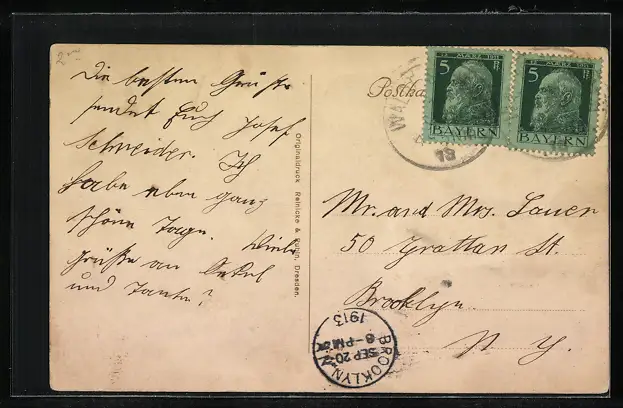 Die besten Grüße
sendet Euch Josef
Schneider. Ich
habe eben ganz
schöne Tage. Viele
grüße an Onkel
und Tante!
Originaldruck Reinicke & Rubin, Dresden.
Postka
12 MÄRZ 1911
5 Pf
BAYERN
12 MÄRZ 1911
5 Pf
BAYERN
13
Mr. and Mrs. Lauer
50 Grattan St.
Brooklyn
N. Y.
BROOKLYN
SEP 20
8-PM
1913